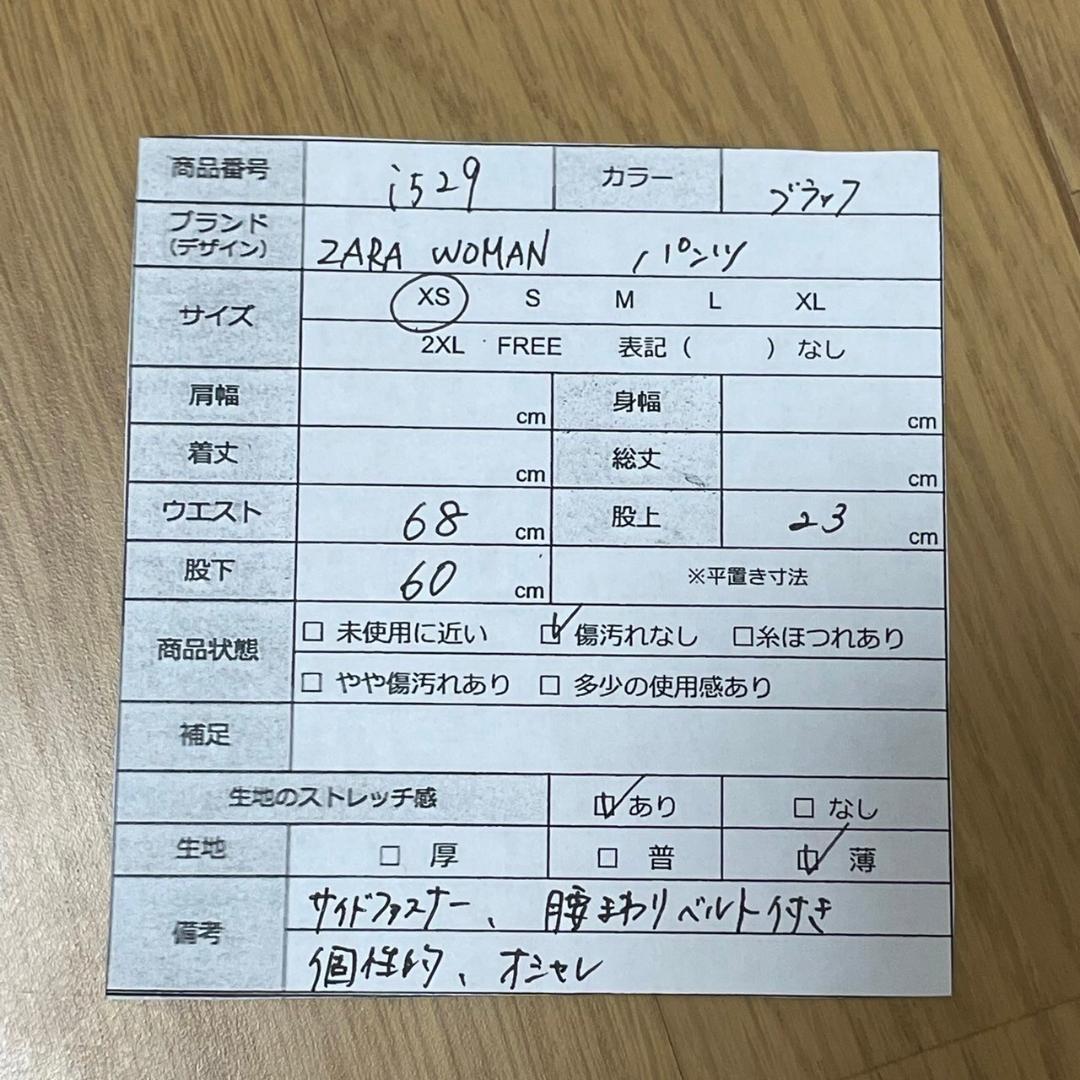 商品番号 i529 カラー ブラック
ブランド ZARA WOMAN パンツ
(デザイン)
サイズ XS S M L XL
2XL FREE 表記 ( ) なし
肩幅 cm 身幅 cm
着丈 cm 総丈 cm
ウエスト 68 cm 股上 23 cm
股下 60 cm ※平置き寸法
商品状態 □ 未使用に近い ☑ 傷汚れなし □糸ほつれあり
□ やや傷汚れあり □ 多少の使用感あり
補足
生地のストレッチ感 ☑ あり □ なし
生地 □ 厚 □ 普 ☑ 薄
備考 サイドファスナー、腰まわりベルト付き
個性的、オシャレ